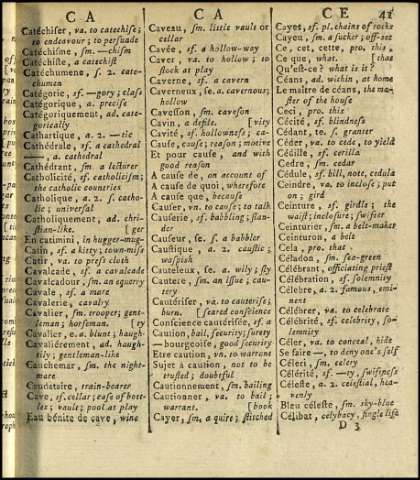 C A
Catéchiser, va. to catechise;
to endeavour; to persuade
Catéchisme, sm. —chism
Catéchiste, a catechist
Catéchumene, s. 2. cate-
chumen
Catégorie, sf. —gory; class
Catégorique, a. precise
Catégoriquement, ad. cate-
gorically
Cathartique, a. 2. —tic
Cathédrale, sf. a cathedral
—, a. cathedral
Cathédrant, sm. a lecturer
Catholicité, sf. catholicism;
the catholic countries
Catholique, a. 2. s. catho-
lic; universal
Catholiquement, ad. chri-
stian-like. [ger
En catimini, in hugger-mug-
Catin, sf. a kitty; town-miss
Catir, va. to press cloth
Cavalcade, sf. a cavalcade
Cavalcadour, sm. an equerry
Cavale, sf. a mare
Cavalerie, cavalry
Cavalier, sm. trooper; gent-
leman; horseman. [ry
Cavalier, e.a. blunt; haugh-
Cavaliérement, ad. haugh-
tily; gentleman-like
Cauchemar, sm. the night-
mare
Caudataire, train-bearer
Cave, sf. cellar; case of bott-
les; vault; pool at play
Eau bénite de cave, wine
C A
Caveau, sm. little vault or
cellar
Cavée, sf. a hollow-way
Caver, va. to hollow; to
stock at play
Caverne, sf. a cavern
Caverneux, se. a. cavernous;
hollow
Cavesson, sm. caveson
Cavin, a defile. [vity
Cavité, sf. hollowness; ca-
Cause, cause; reason; motive
Et pour cause, and with
good reason
A cause de, on account of
A cause de quoi, wherefore
A cause que, because
Causer, vn. va. to cause; to talk
Causerie, sf. babbling; slan-
der
Causeur, se. s. a babbler
Caustique, a. 2. caustic;
waspish
Cauteleux, se. a. wily; sly
Cautere, sm. an issue; cau-
tery
Cautériser, va. to cauterise;
burn. [seared conscience
Conscience cautérisée, sf. a
Caution, bail, security; surety
—bourgeoise, good security
Etre caution, vn. to warrant
Sujet à caution, not to be
trusted; doubtful
Cautionnement, sm. bailing
Cautionner, va. to bail;
warrant. [book
Cayer, sm. a quire; stitched
C E 41
Cayes, sf. pl. chains of rocks
Cayeu, sm. a sucker; off-set
Ce, cet, cette, pro. this
Ce que, what. that
Qu'est-ce? what is it?
Céans, ad. within, at home
Le maître de céans, the mas-
ter of the house
Ceci, pro. this
Cécité, sf. blindness
Cédant, te. s. granter
Céder, va. to cede, to yield
Cédille, sf. cerilla
Cedre, sm. cedar
Cédule, sf. bill, note, cedula
Ceindre, va. to inclose; put
on; gird
Ceinture, sf. girdle; the
waist; inclosure; swifter
Ceinturier, sm. a belt-maker
Ceinturon, a belt
Cela, pro. that
Céladon, sm. sea-green
Célébrant, officiating priest
Célébration, sf. solemnity
Célebre, a. 2. famous, emi-
nent
Célébrer, va. to celebrate
Célébrité, sf. celebrity, so-
lemnity
Céler, va. to conceal, hide
Se faire —, to deny one's self
Céleri, sm. celery
Célérité, sf. —ty, swiftness
Céleste, a. 2. celestial, hea-
venly
Bleu céleste, sm. sky-blue
Célibat, celybacy, single life
D 3